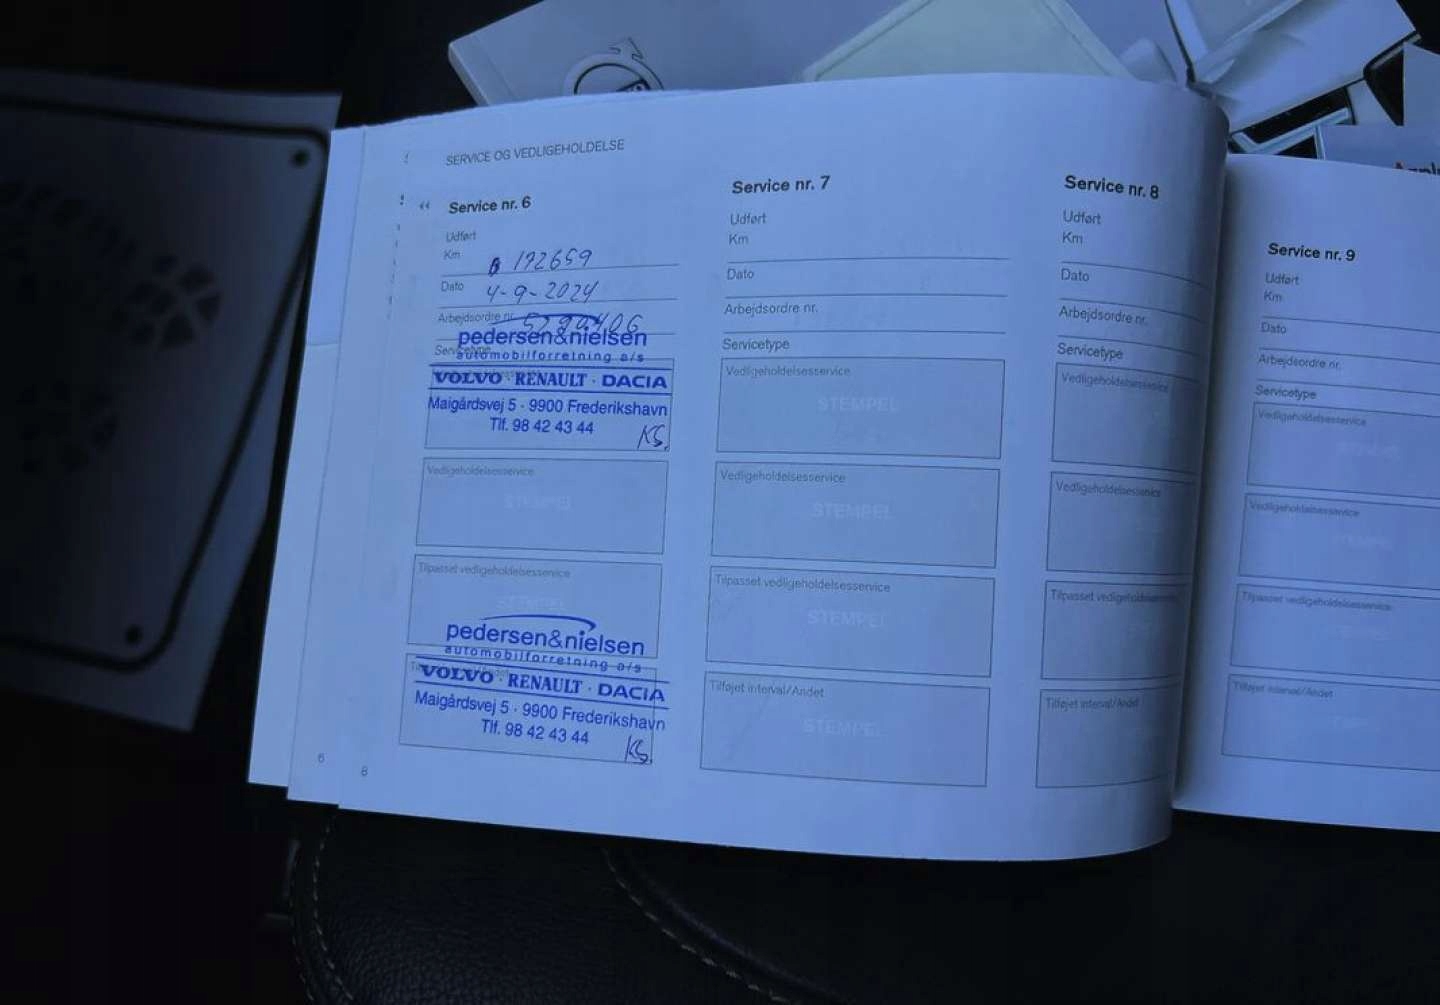 SERVICE OG VEDLIGEHOLDELSE
Service nr. 6
Udført
Km 192659
Dato 4-9-2024
Arbejdsordre nr.
Servicetype
pedersen&nielsen
automobilforretning a/s
VOLVO · RENAULT · DACIA
Maigårdsvej 5 · 9900 Frederikshavn
Tlf. 98 42 43 44
KS.
Vedligeholdelsesservice
STEMPEL
Tilpasset vedligeholdelsesservice
STEMPEL
pedersen&nielsen
automobilforretning a/s
VOLVO · RENAULT · DACIA
Maigårdsvej 5 · 9900 Frederikshavn
Tlf. 98 42 43 44
KS.
6
8
Service nr. 7
Udført
Km
Dato
Arbejdsordre nr.
Servicetype
Vedligeholdelsesservice
STEMPEL
Vedligeholdelsesservice
STEMPEL
Tilpasset vedligeholdelsesservice
STEMPEL
Tilføjet interval/Andet
STEMPEL
Service nr. 8
Udført
Km
Dato
Arbejdsordre nr.
Servicetype
Vedligeholdelsesservice
Vedligeholdelsesservice
Tilpasset vedligeholdelsesservice
Tilføjet interval/Andet
Service nr. 9
Udført
Km
Dato
Arbejdsordre nr.
Servicetype
Vedligeholdelsesservice
Vedligeholdelsesservice
Tilpasset vedligeholdelsesservice
Tilføjet interval/Andet